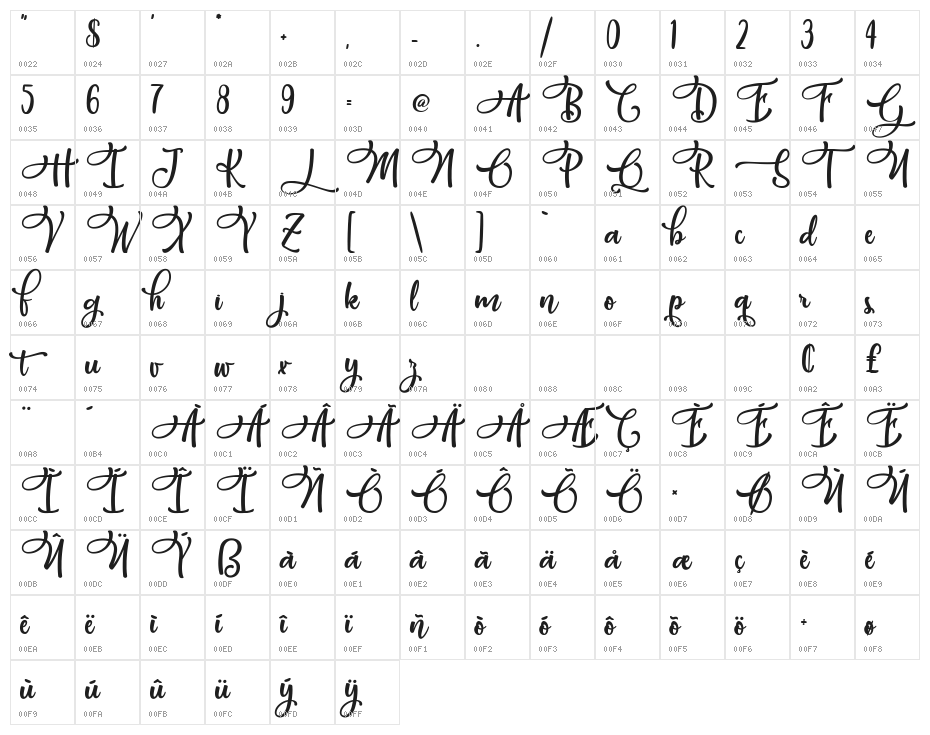 " $ ' * + , - . / 0 1 2 3 4
0022 0024 0027 002A 002B 002C 002D 002E 002F 0030 0031 0032 0033 0034
5 6 7 8 9 = @ A B C D E F G
0035 0036 0037 0038 0039 003D 0040 0041 0042 0043 0044 0045 0046 0047
H I J K L M N O P Q R S T U
0048 0049 004A 004B 004C 004D 004E 004F 0050 0051 0052 0053 0054 0055
V W X Y Z [ \ ] ` a b c d e
0056 0057 0058 0059 005A 005B 005C 005D 0060 0061 0062 0063 0064 0065
f g h i j k l m n o p q r s
0066 0067 0068 0069 006A 006B 006C 006D 006E 006F 0070 0071 0072 0073
t u v w x y z ¢ £
0074 0075 0076 0077 0078 0079 007A 0080 0088 008C 0098 009C 00A2 00A3
¨ ´ À Á Â Ã Ä Å Æ Ç È É Ê Ë
00A8 00B4 00C0 00C1 00C2 00C3 00C4 00C5 00C6 00C7 00C8 00C9 00CA 00CB
Ì Í Î Ï Ñ Ò Ó Ô Õ Ö × Ø Ù Ú
00CC 00CD 00CE 00CF 00D1 00D2 00D3 00D4 00D5 00D6 00D7 00D8 00D9 00DA
Û Ü Ý ß à á â ã ä å æ ç è é
00DB 00DC 00DD 00DF 00E0 00E1 00E2 00E3 00E4 00E5 00E6 00E7 00E8 00E9
ê ë ì í î ï ñ ò ó ô õ ö ÷ ø
00EA 00EB 00EC 00ED 00EE 00EF 00F1 00F2 00F3 00F4 00F5 00F6 00F7 00F8
ù ú û ü ý ÿ
00F9 00FA 00FB 00FC 00FD 00FF